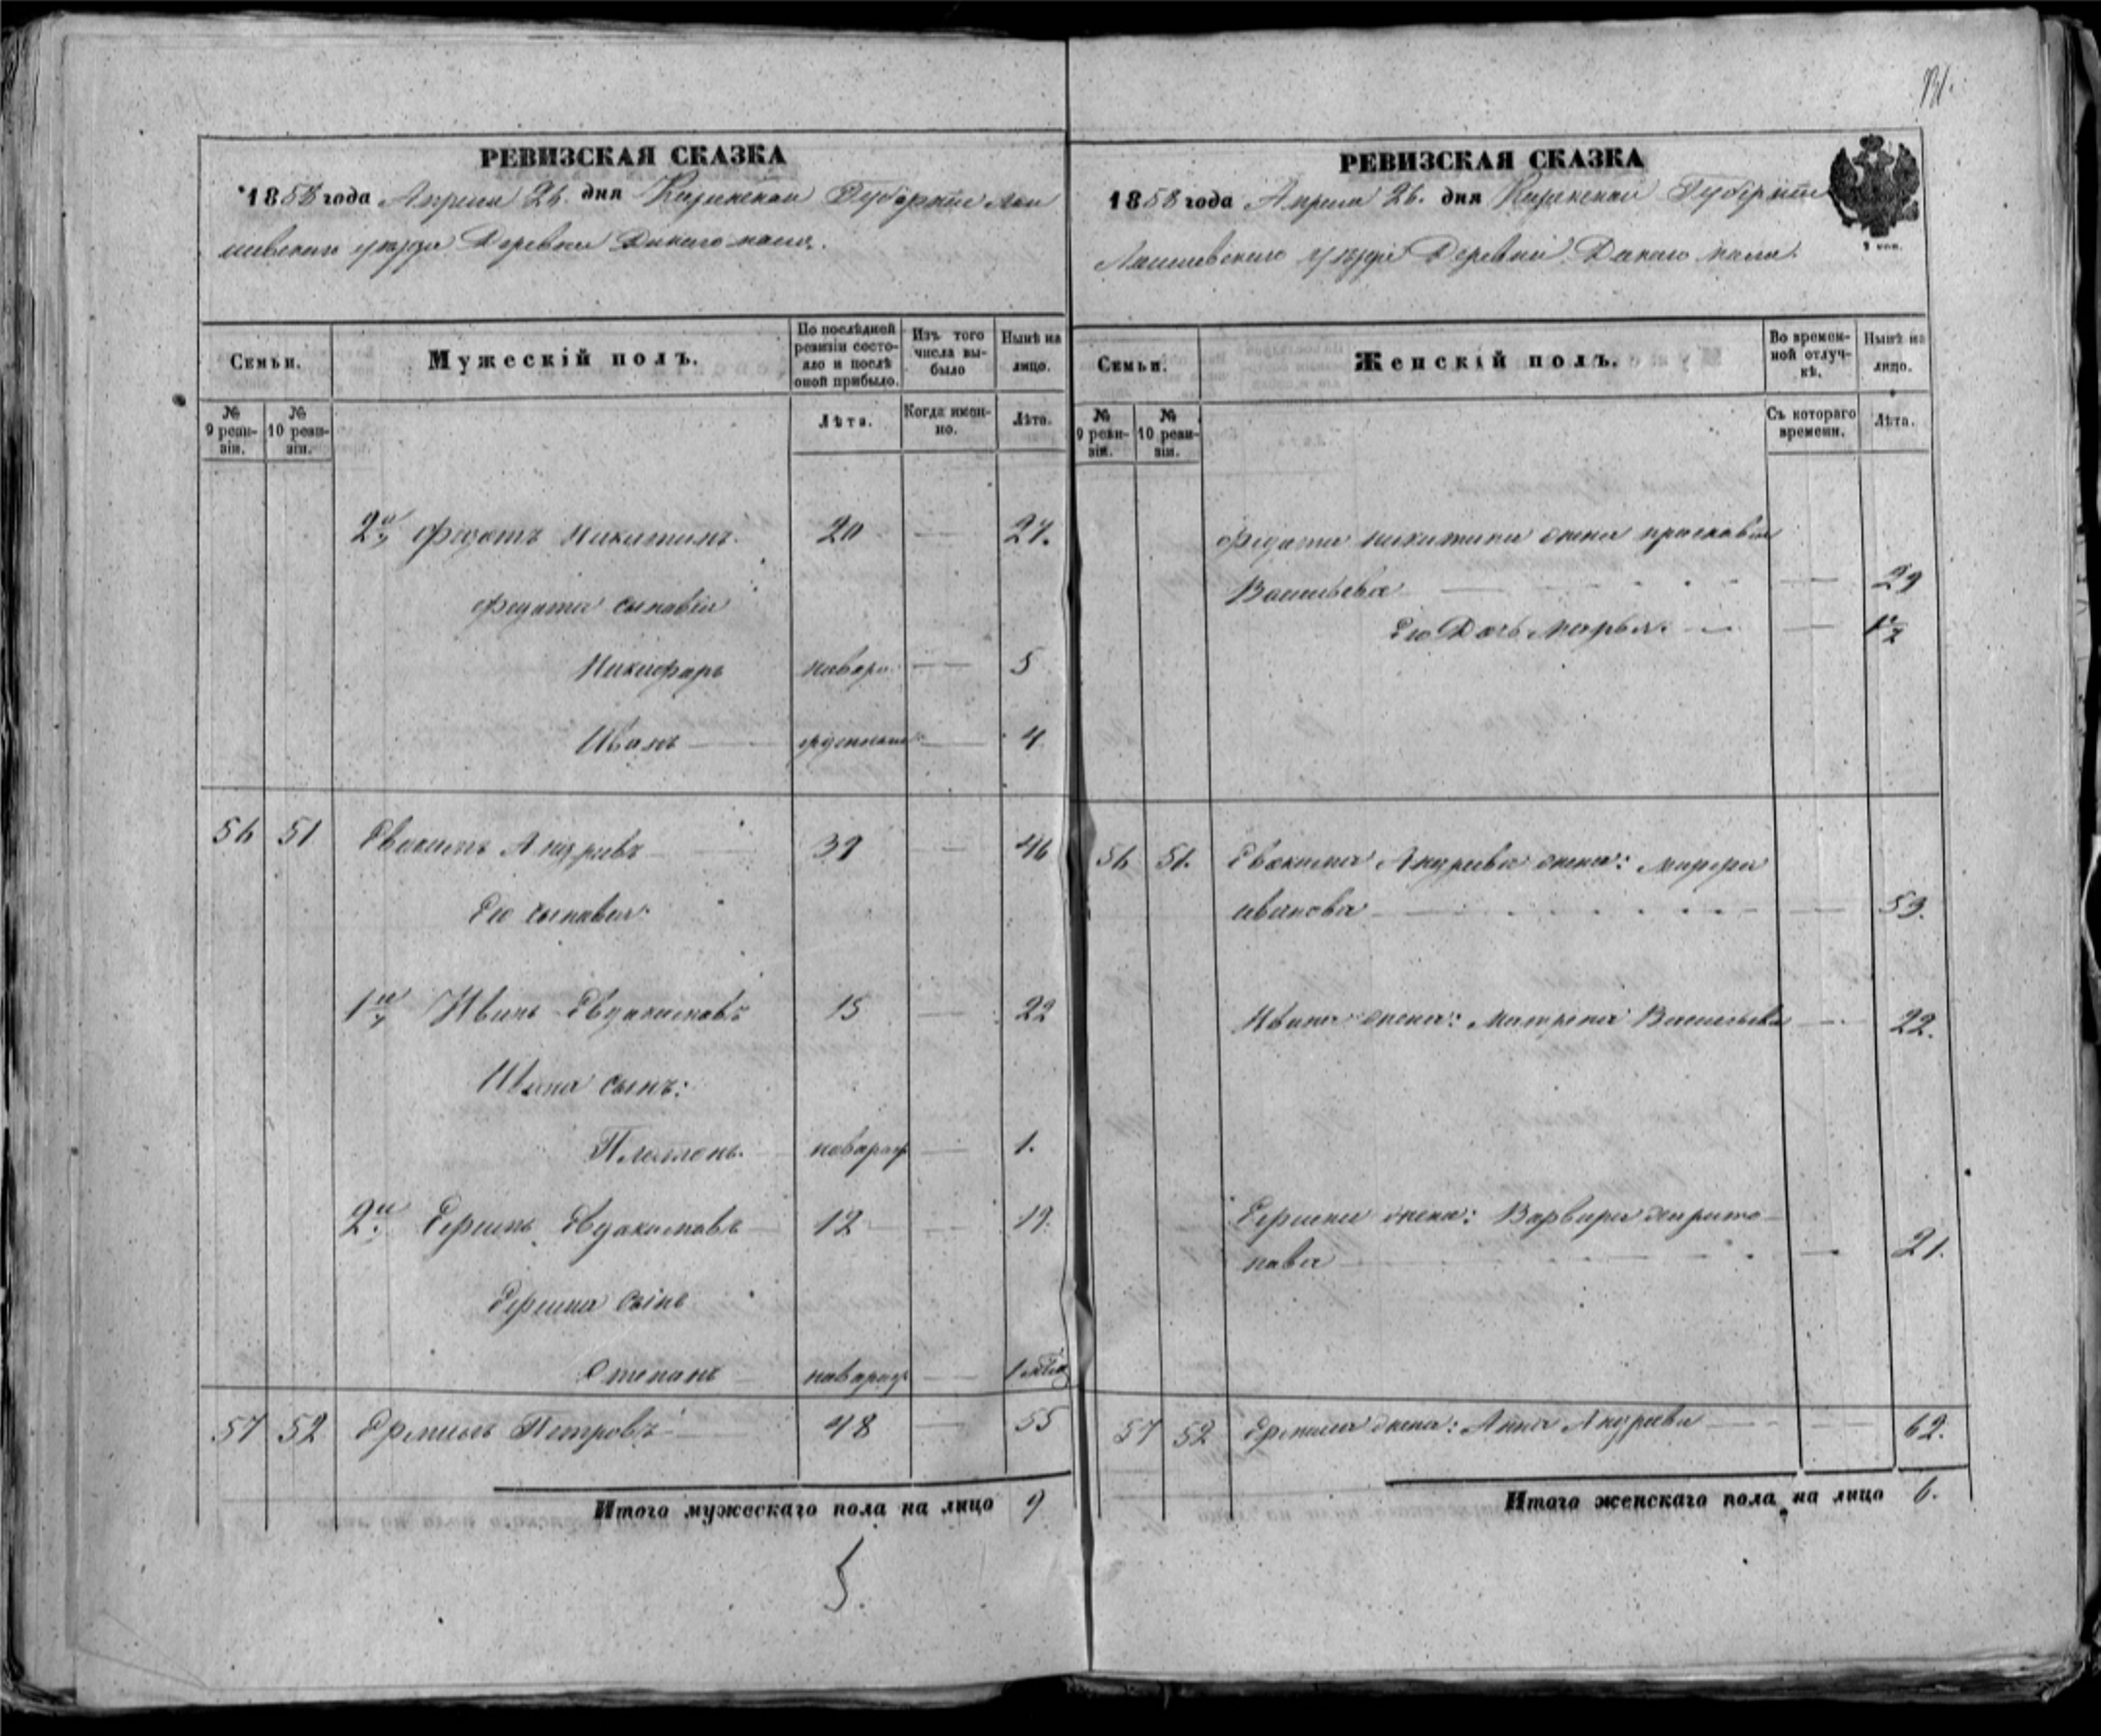 РЕВИЗСКАЯ СКАЗКА
1858 года Апреля 26. дня Казанской Губерніи Лаи
шевскаго уезда Деревни
Семьи.
Мужескій полъ.
По послѣдней ревизіи состояло и послѣ оной прибыло.
Изъ того числа выбыло
Нынѣ на лицо.
№ 9 ревизіи.
№ 10 ревизіи.
Лѣта.
Когда именно.
Лѣта.
2й Федотъ Никитинъ. 20 — 27.
Федота сыновія
Никифаръ новоро — 5
Иванъ — — 4
56 51 Евдокимъ Андреевъ 39 — 46
Его сыновья
1й Иванъ Евдокимовъ 15 — 22
Ивана сынъ:
Платонъ. новорож — 1.
2й Герасимъ Евдокимовъ 12 — 19.
Сынъ
Степанъ новорож — 1
57 52 Ермилъ Петровъ 48 — 55
Итого мужескаго пола на лицо 9
5.
РЕВИЗСКАЯ СКАЗКА
1858 года Апреля 26. дня Казанской Губерніи
Лаишевскаго уезда Деревни
2 коп.
Семьи.
Женскій полъ.
Во временной отлучкѣ.
Нынѣ на лицо.
№ 9 ревизіи.
№ 10 ревизіи.
Съ котораго времени.
Лѣта.
Федота Никитина жена Прасковья
Васильева — — 29
Его Дочь Марья. — —
56 51. Евдокима Андреева жена: Марфа
иванова — — 59.
Ивана жена: Матрена Васильева — 22.
жена: Варвара
нова — — 21.
57 52 Ермила жена: Анна Андреева — — 62.
Итого женскаго пола на лицо 6.